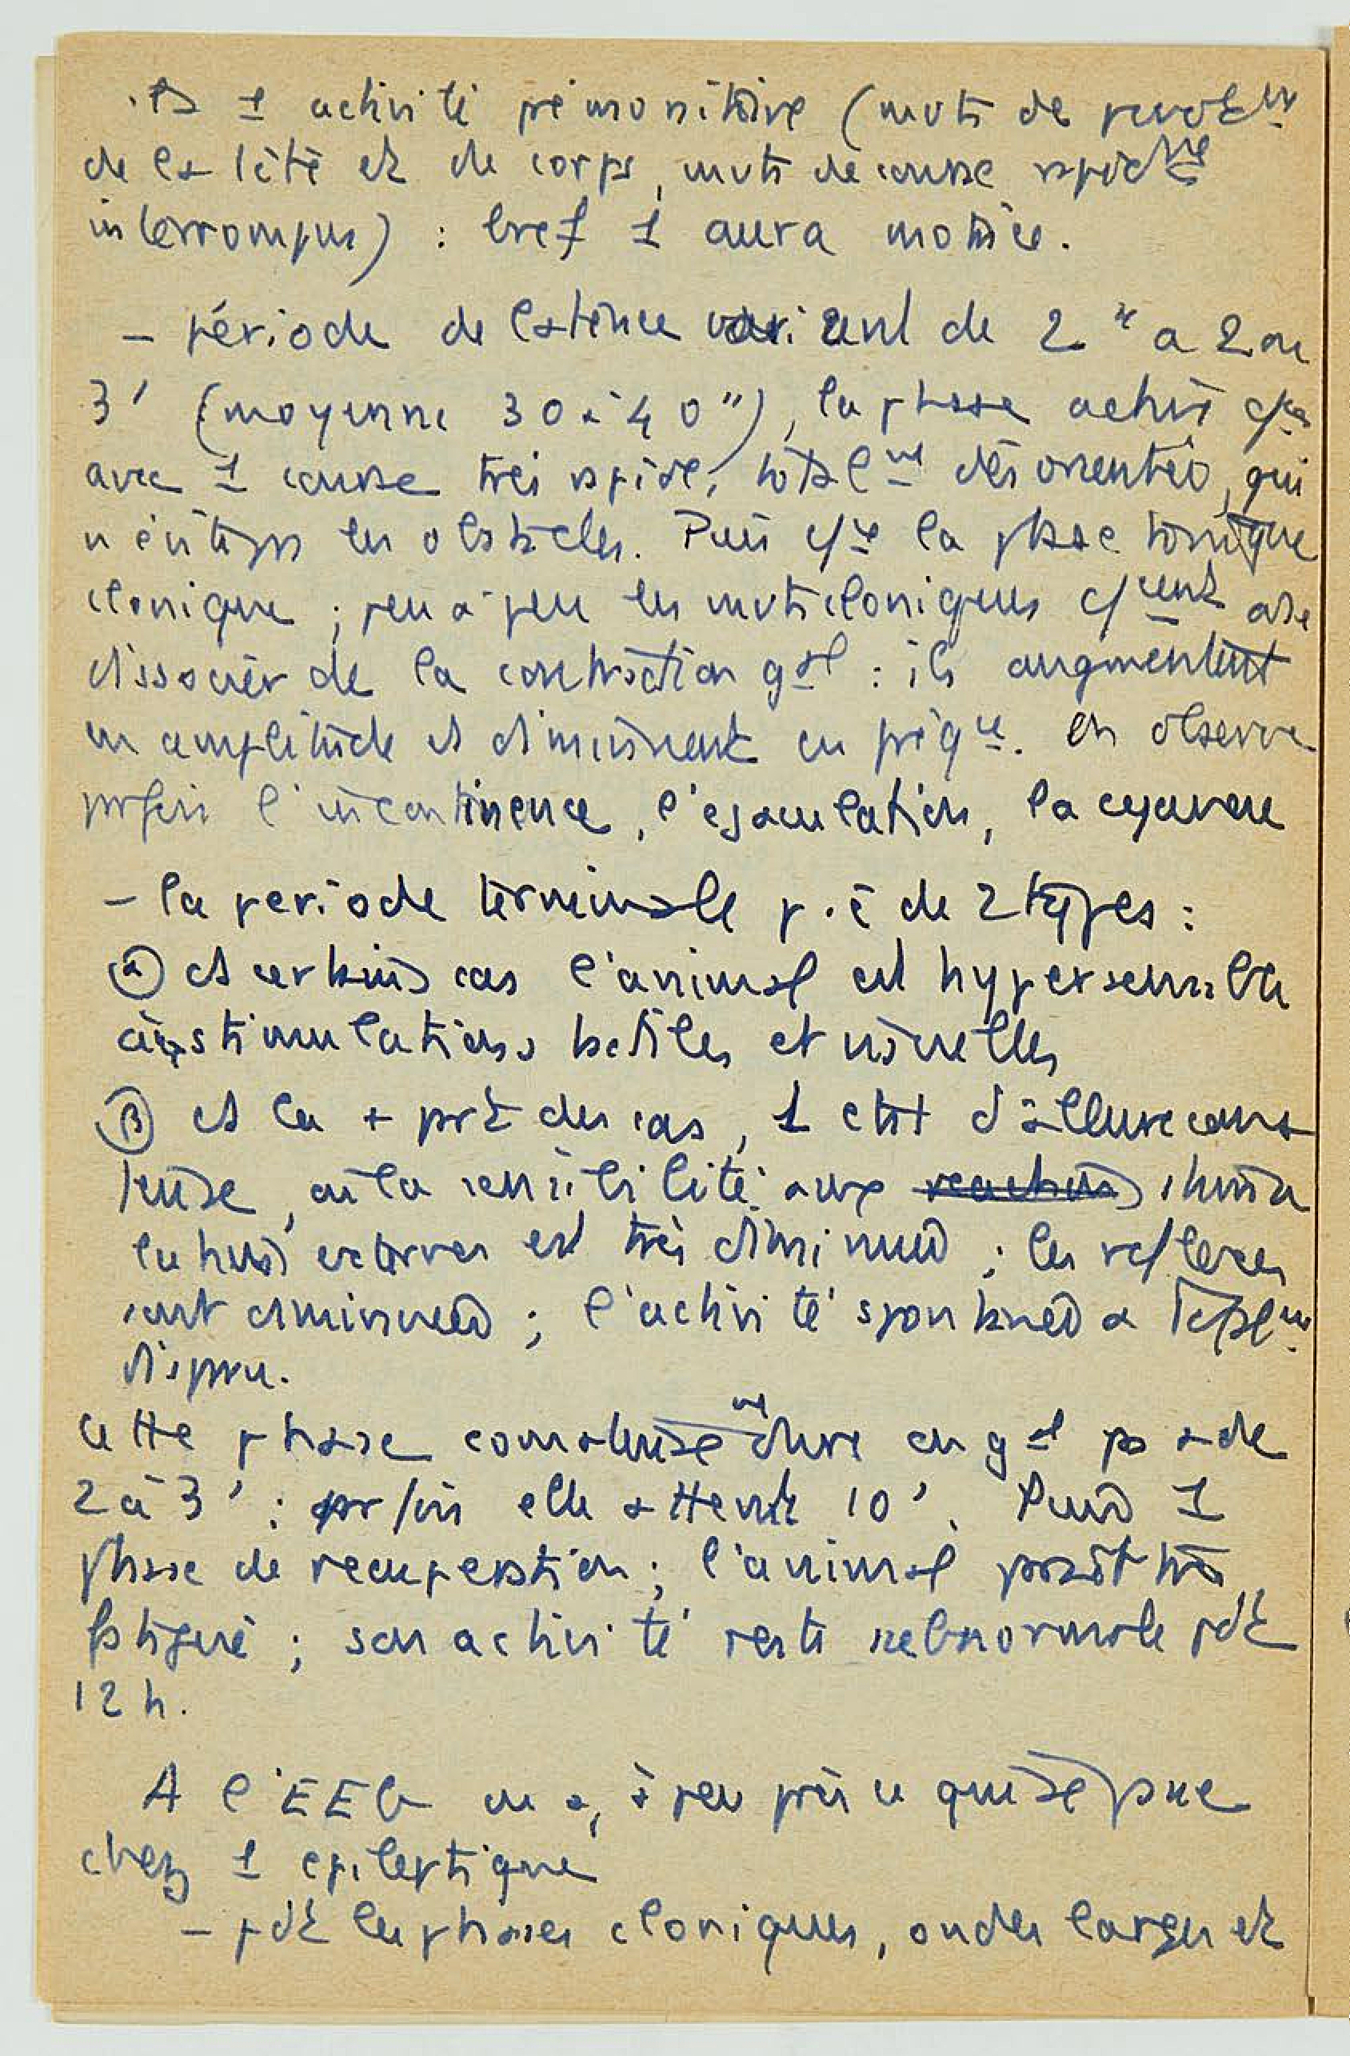 1 activité prémonitoire (mvts de
de la tête et de corps, mvts de course rapidmt
interrompus) : bref 1 aura motrice.
– période de latence variant de 2" a 2 ou
3' (moyenne 30 à 40"), la phase active
avec 1 course très rapide, totalmt désorientée, qui
n'évite pas les obstacles. Puis la phase tonique
clonique ; peu à peu les mvts cloniques a se
dissocier de la contraction gal : ils augmentent
en amplitude et diminuent en fréqce. On observe
parfois l'incontinence, l'ejaculation, la cyanose
– la periode terminale p. ê de 2 types :
α ds certains cas l'animal est hypersensible
aux stimulations tactiles et visuelles
β ds la + part des cas, 1 etat d'allure coma
teuse, où la sensibilité aux reactions stimu
lations externes est très diminuée ; les reflexes
sont diminués ; l'activité spontanée a totalmt
disparu.
Cette phase comateuse dure en gal pas + de
2 à 3' : parfois elle atteint 10'. Puis 1
phase de recuperation ; l'animal paraît très
fatigué ; son activité reste subnormale pdt
12 h.
A l'EEG on a, à peu près ce qui se passe
chez 1 epileptique
– pdt les phases cloniques, ondes larges et